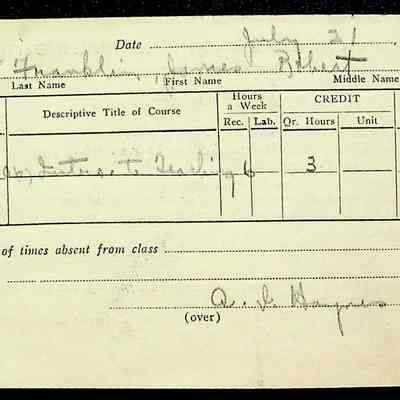 Date July 21
Franklin, James Robert
Last Name First Name Middle Name
Hours a Week CREDIT
Descriptive Title of Course Rec. Lab. Qr. Hours Unit
Intro. to Teaching 6 3
of times absent from class
(over)